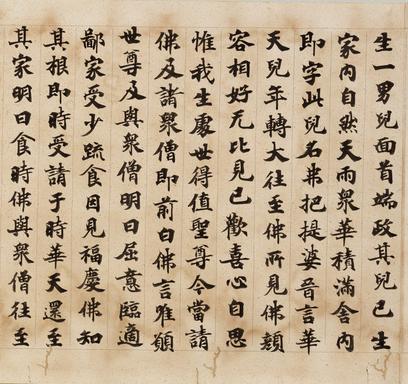 生一男兒面首端政其兒已生
家内自然天雨衆華積滿舍内
即字此兒名弗把提婆晉言華
天兒年轉大往至佛所見佛顏
容相好无比見已歡喜心自思
惟我生處世得值聖尊今當請
佛及諸衆僧即前白佛言唯願
世尊及與衆僧明日屈意臨適
鄙家受少蔬食因見福慶佛知
其根即時受請于時華天還至
其家明日食時佛與衆僧往至